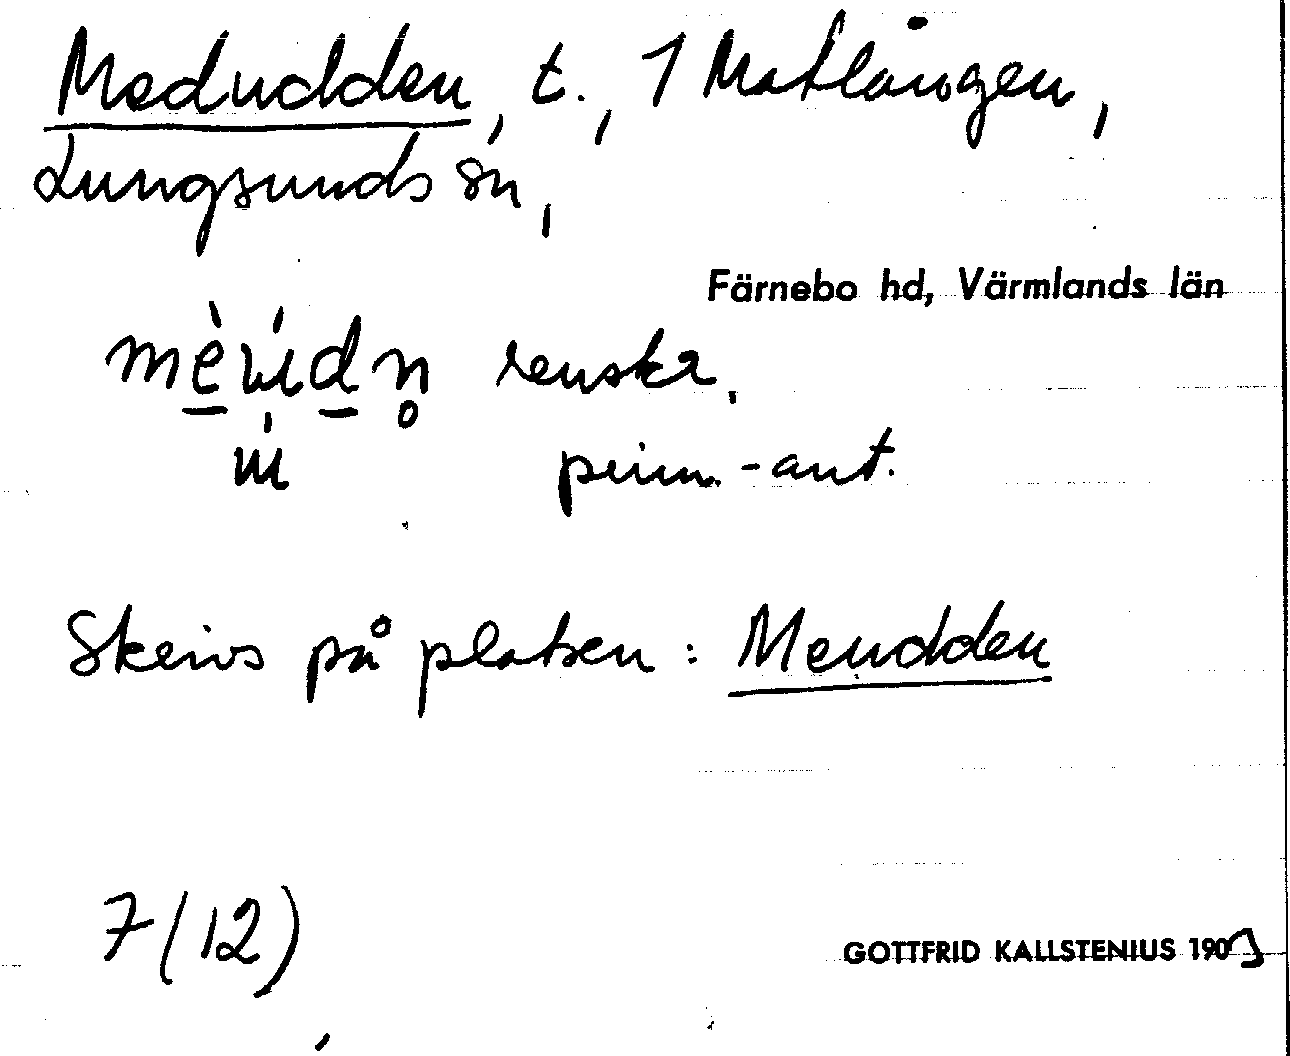 Medudden, t., 1 Matlången,
Lungsunds sn,
Färnebo hd, Värmlands län
renskr.
prim.-ant.
Skrivs på platsen: Meudden
7(12)
GOTTFRID KALLSTENIUS 190